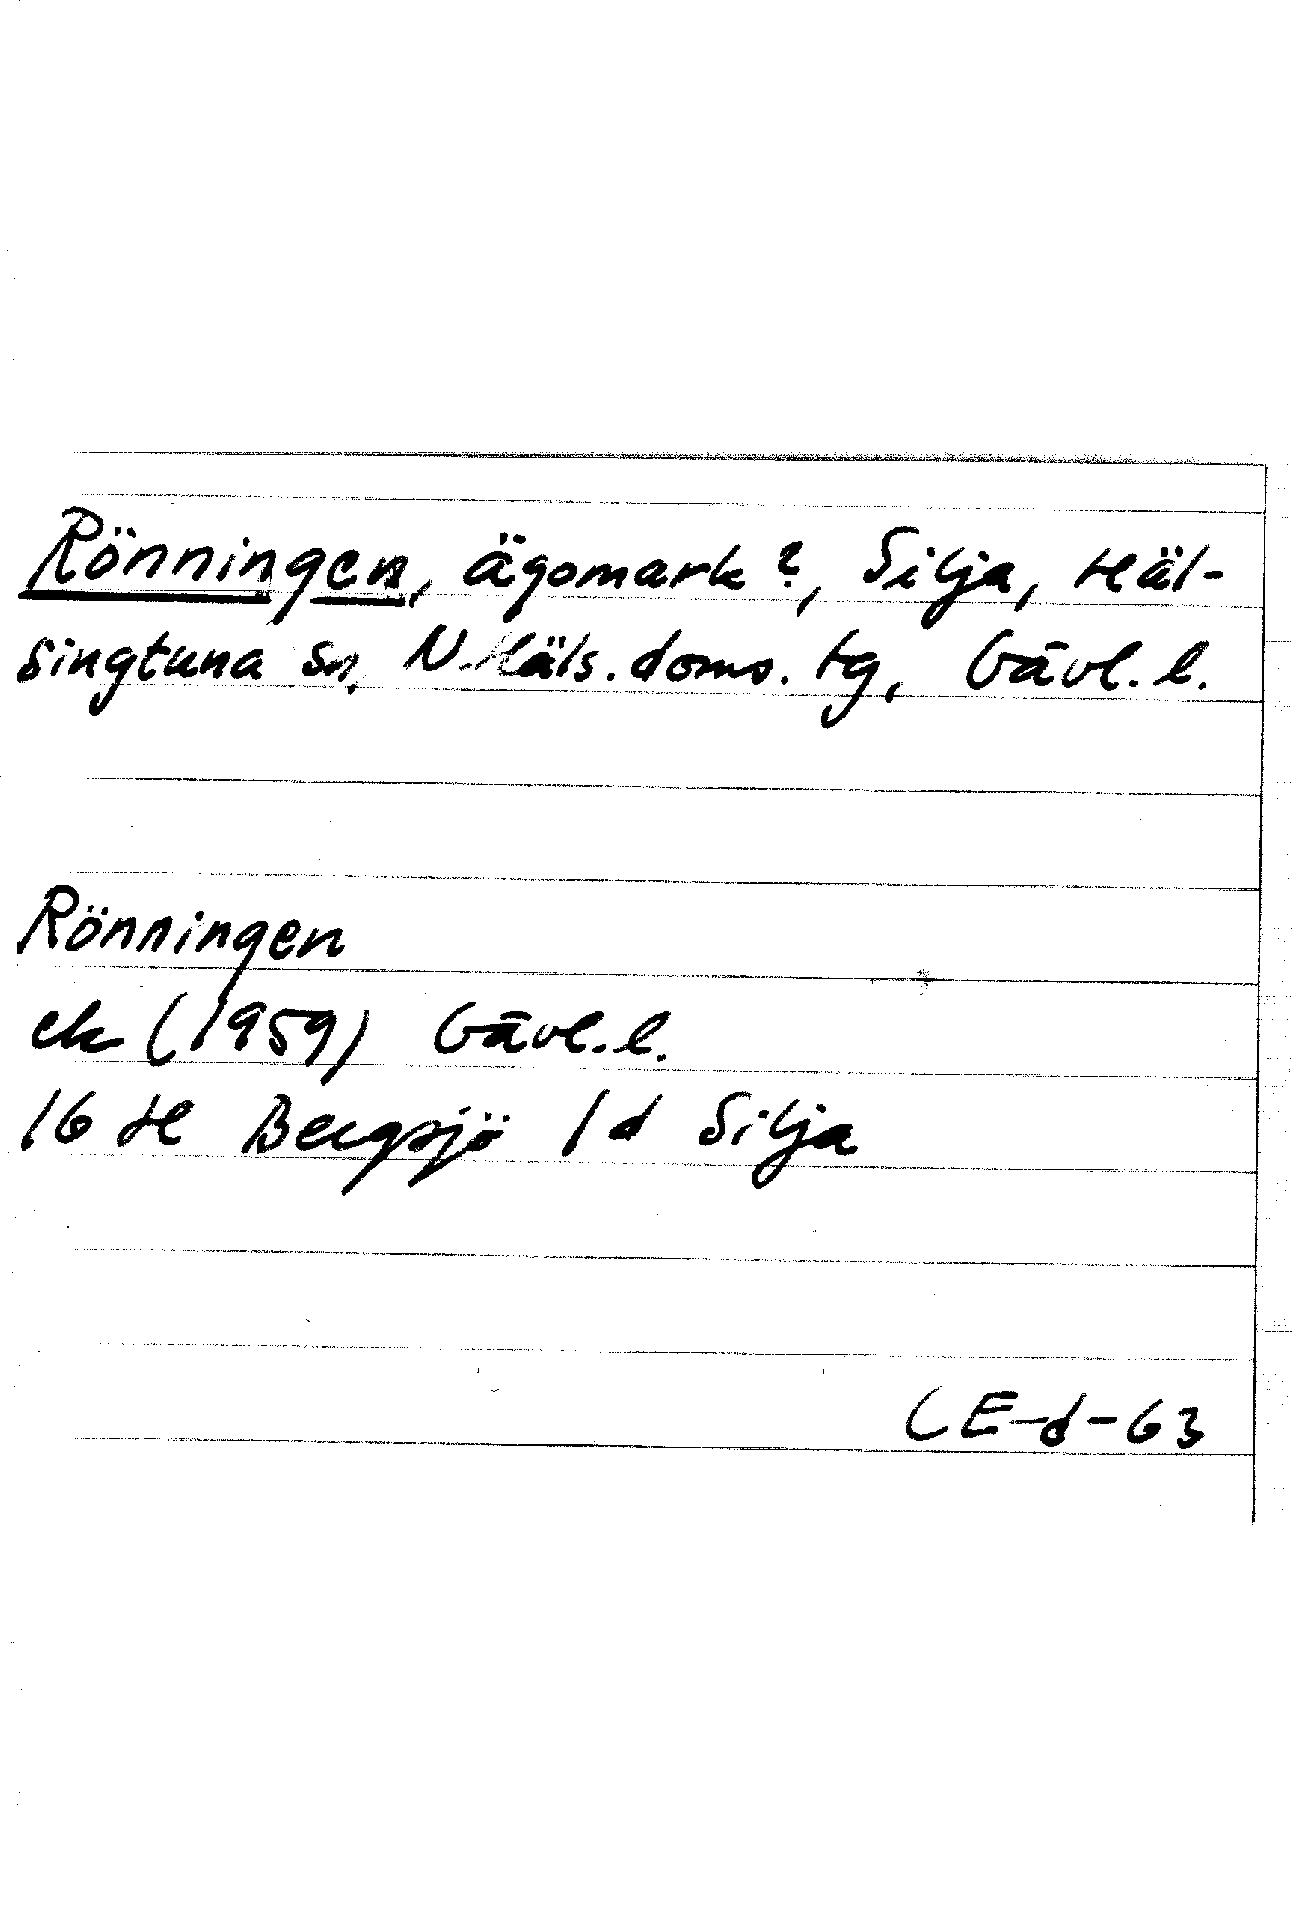 Rönningen, ägomark?, Silja, Häl-
singtuna sn, N. Häls. doms. tg, Gävl. l.
Rönningen
ek (1959) Gävl. l.
16 H Bergsjö 1 d Silja
CE-d-63